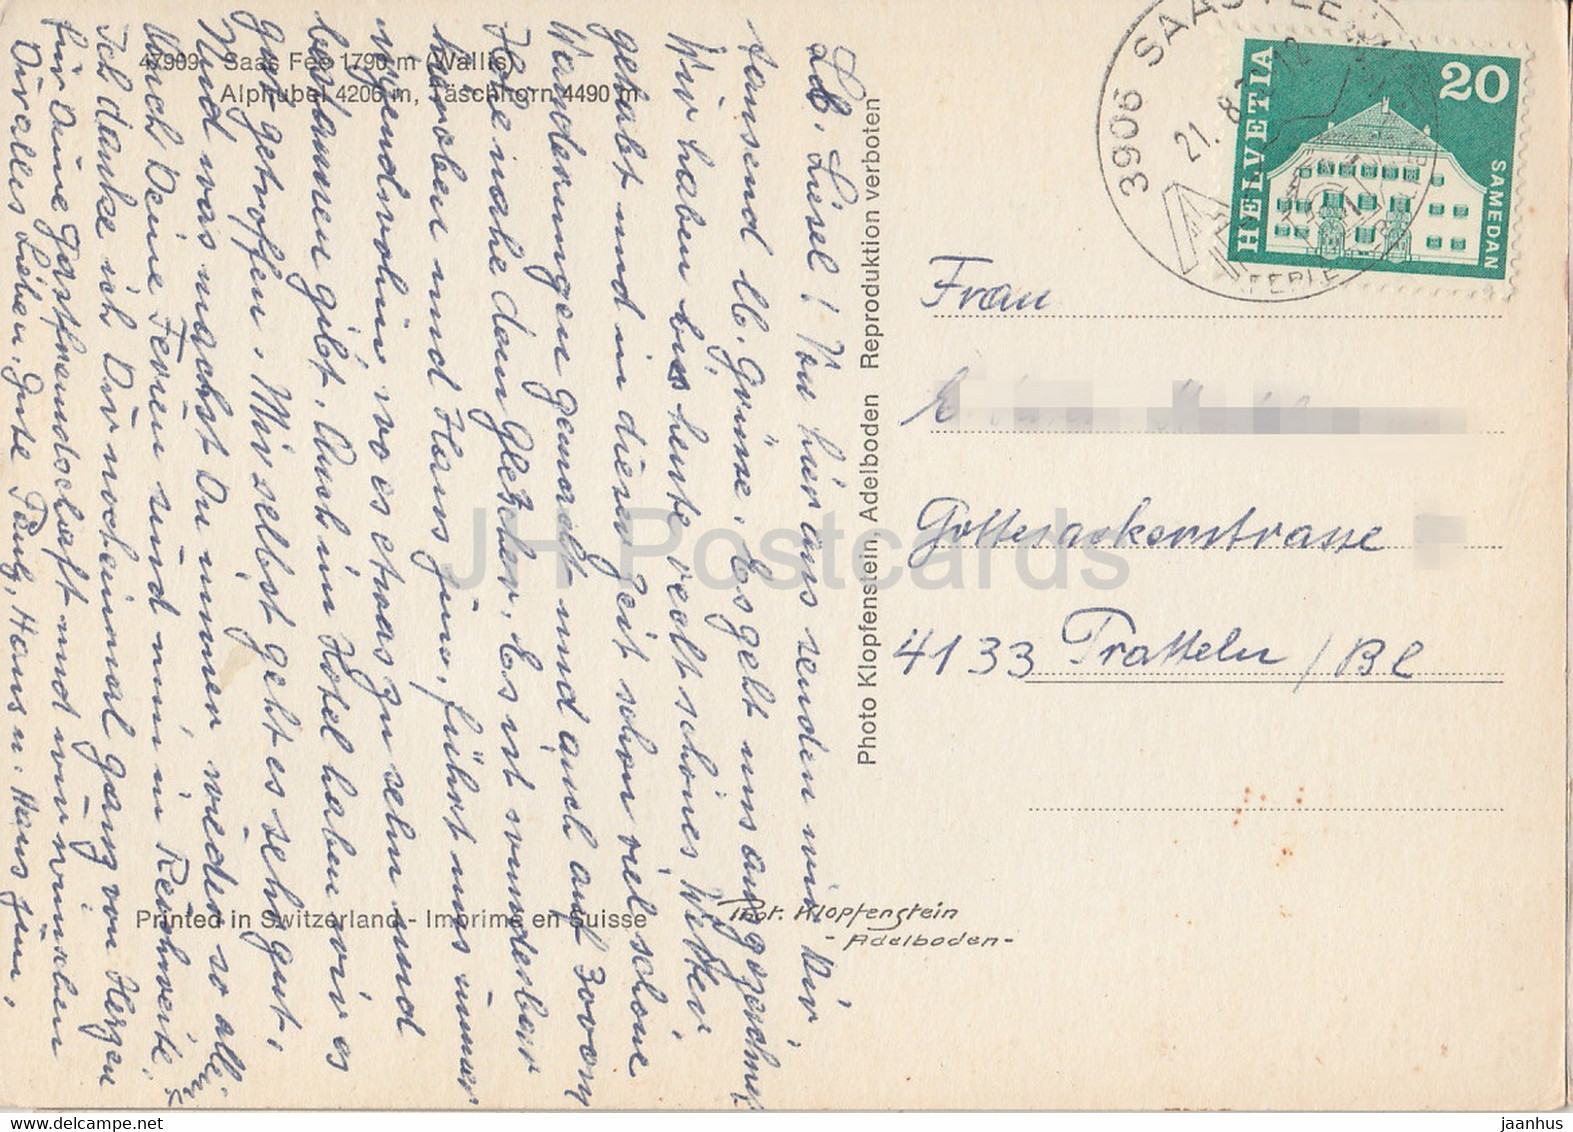 47909 Saas Fee 1790 m (Wallis)
Alphubel 4206 m, Täschhorn 4490 m
Lb. Liesel! Von hier aus senden wir Dir
tausend lb. Grüsse. Es geht uns ausgezeichnet
Wir haben bis heute recht schönes Wetter
gehabt und in dieser Zeit schon viel schöne
Wanderungen gemacht und auch auf 3000m
Höhe nahe dem Gletscher. Es ist wunderbar
hier oben und Hans jun. führt uns immer
irgendwohin wo es etwas zu sehn und
bestaunen gibt. Auch im Hotel haben wir es
gut getroffen. Mir selbst geht es sehr gut.
Und was machst Du immer wieder so allein
Auch Deine Ferien sind nun in Reichweite.
Ich danke ich Dir nocheinmal ganz von Herzen
für Deine Gastfreundschaft und wir wünschen
Dir alles Liebe. Hans u. Hans jun.
Photo Klopfenstein, Adelboden Reproduktion verboten
Printed in Switzerland - Imprimé en Suisse
Phot. Klopfenstein
- Adelboden -
3906 SAAS-FEE
21.8. 12
HELVETIA
20
SAMEDAN
Frau
Gottesackerstrasse
4133 Pratteln / BL
JH Postcards
jaanhus